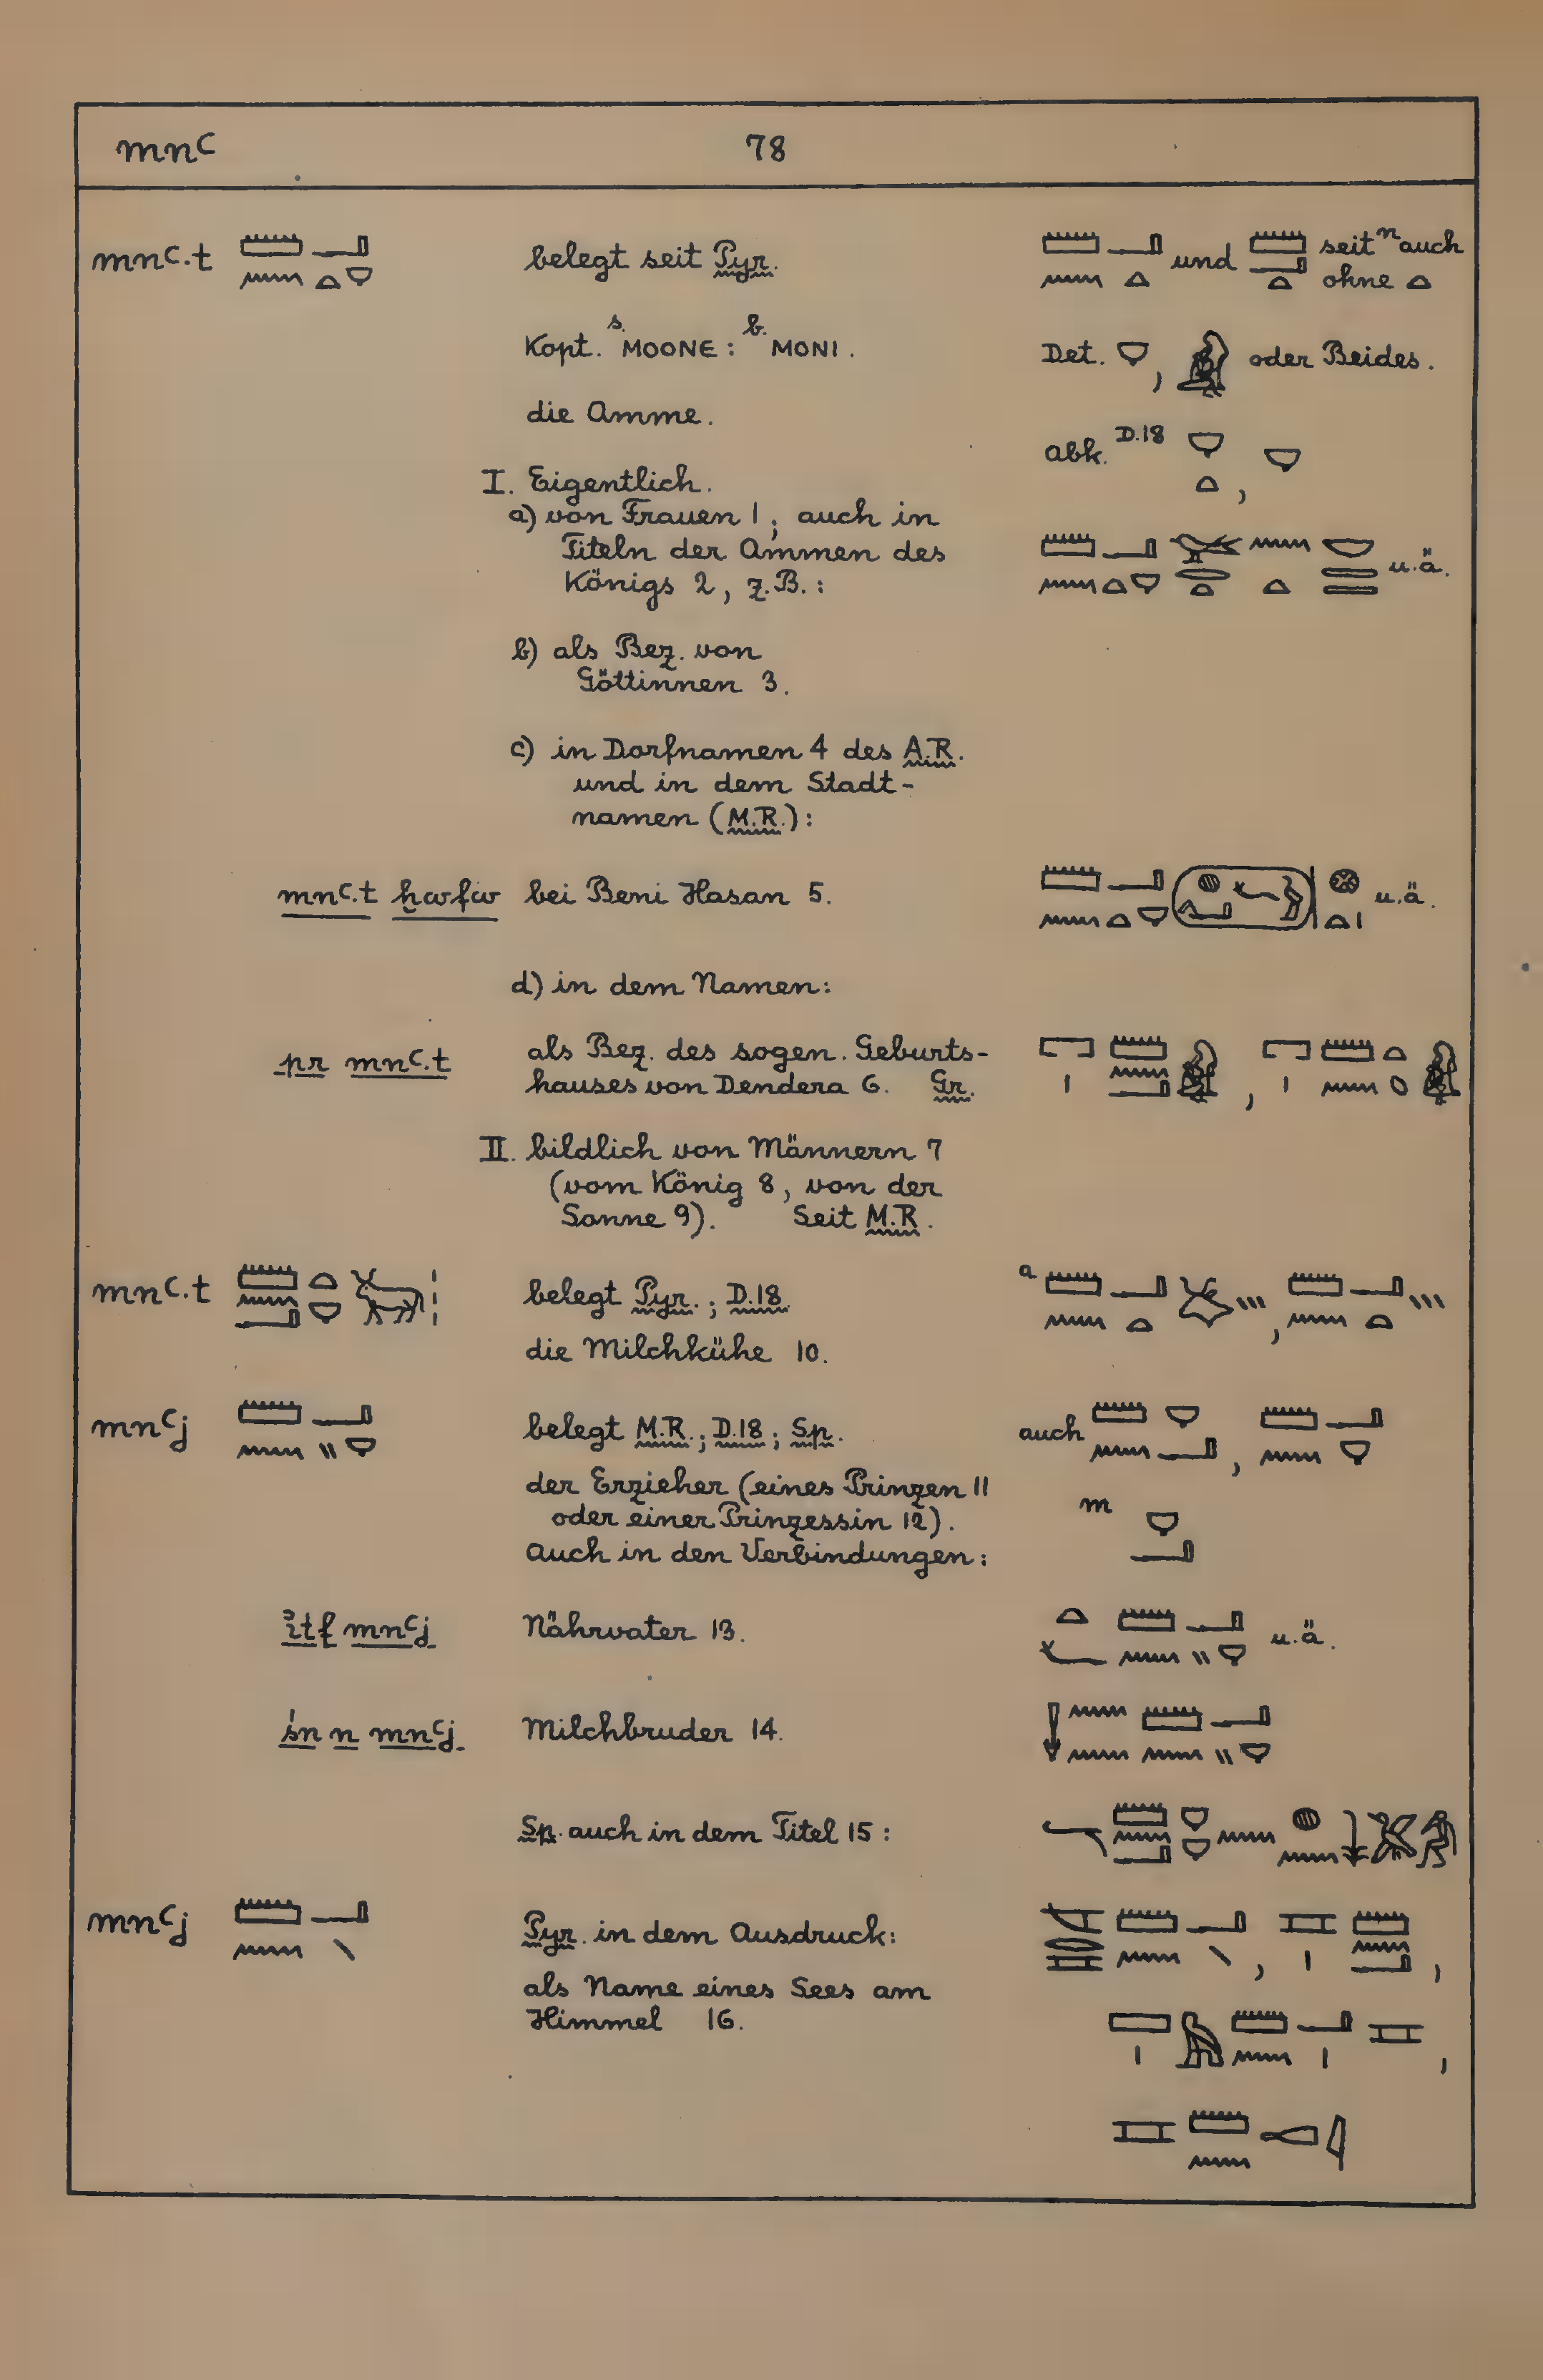 mnꜥ 78
mnꜥ.t 𓏠𓈖𓂝𓏏𓂑 belegt seit Pyr. 𓏠𓈖𓂝𓏏 und 𓏠𓂝𓏏 seit ⁿ auch
ohne 𓏏
Kopt. s. ⲘⲞⲞⲚⲈ : b. ⲘⲞⲚⲒ. Det. 𓂑, oder Beides.
die Amme.
Abk. D.18 𓂑𓏏, 𓂑
I. Eigentlich.
a) von Frauen 1; auch in
Titeln der Ammen des
Königs 2, z.B.: 𓏠𓈖𓂝𓏏𓂑𓅨𓂋𓏏𓈖𓏏𓎟𓇿𓇿 u.ä.
b) als Bez. von
Göttinnen 3.
c) in Dorfnamen 4 des A.R.
und in dem Stadt-
namen (M.R.):
mnꜥ.t ḫwfw bei Beni Hasan 5. 𓏠𓈖𓂝𓏏𓂑 𓊖𓏏𓏤 u.ä.
d) in dem Namen:
pr mnꜥ.t als Bez. des sogen. Geburts-
hauses von Dendera 6. Gr. 𓉐𓏤𓏠𓈖𓂝, 𓉐𓏤𓏠𓈖𓏏
II. bildlich von Männern 7
(vom König 8, von der
Sonne 9). Seit M.R.
mnꜥ.t 𓏠𓈖𓂝𓏏𓂑𓃒𓏥 belegt Pyr.; D.18. a 𓏠𓈖𓂝𓏏𓏥, 𓏠𓈖𓂝𓏏𓏥
die Milchkühe 10.
mnꜥj 𓏠𓈖𓂝𓏭𓂑 belegt M.R.; D.18; Sp. auch 𓏠𓈖𓂑𓂝, 𓏠𓈖𓂝𓂑
der Erzieher (eines Prinzen 11
oder einer Prinzessin 12). m 𓂑𓂝
Auch in den Verbindungen:
ı͗tf mnꜥj Nährvater 13. 𓏏𓆑𓏠𓈖𓂝𓏭𓂑 u.ä.
śn n mnꜥj. Milchbruder 14. 𓌢𓈖𓈖𓏠𓈖𓂝𓏭𓂑
Sp. auch in dem Titel 15:
mnꜥj 𓏠𓈖𓂝𓏲 Pyr. in dem Ausdruck:
als Name eines Sees am
Himmel 16.